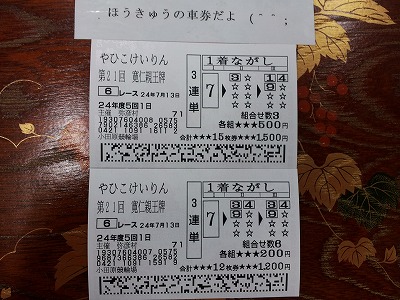 ほうきゅうの車券だよ (^^;
やひこけいりん
第21回 寛仁親王牌
6 レース 24年7月13日
24年度5回1日
主催 弥彦村 71
小田原競輪場
3連単
1着ながし
7 ▶ 3 ▶ 1 4
組合せ数3
各組★★★500円
合計★★★15枚券★★★1,500円
やひこけいりん
第21回 寛仁親王牌
6 レース 24年7月13日
24年度5回1日
主催 弥彦村 71
小田原競輪場
3連単
1着ながし
7 ▶ 3 4 ▶ 3 4
9 9
組合せ数6
各組★★★200円
合計★★★12枚券★★★1,200円